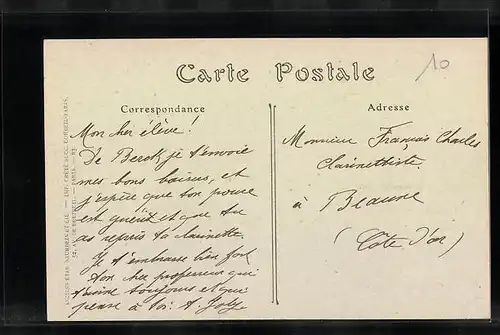 Carte Postale
10
Correspondance
Mon cher élève!
De Berck je t'envoie
mes bons baisers, et
j'espère que ton pouce
est guérit et que tu
as repris ta clarinette.
Je t'embrasse bien fort
ton cher professeur qui
t'aime toujours et qui
pense à toi. A.
Adresse
Monsieur Français Charles
Clarinettiste
à Beaune
(Côte d'or)